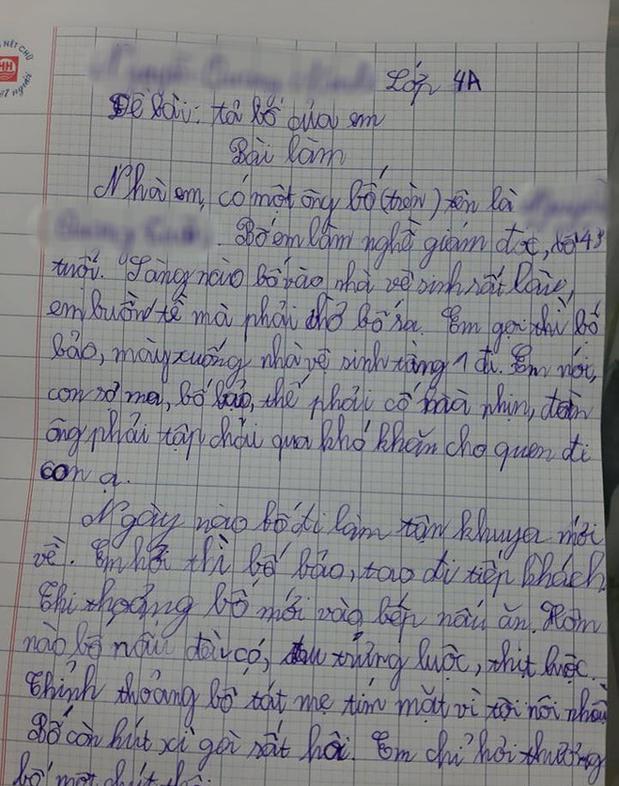 NÉT CHỮ
HH
NẾT NGƯỜI
Lớp 4A
Đề bài: tả bố của em
Bài làm
Nhà em, có một ông bố (trèn) tên là
. Bố em làm nghề giám đốc, bố 43
tuổi. Sáng nào bố vào nhà vệ sinh rất lâu,
em buồn tè mà phải chờ bố ra. Em gọi thì bố
bảo, mày xuống nhà vệ sinh tầng 1 đi. Em nói,
con sợ ma, bố bảo, thế phải cố mà nhịn, đàn
ông phải tập chải qua khó khăn cho quen đi
con ạ.
Ngày nào bố đi làm tận khuya mới
về. Em hỏi thì bố bảo, tao đi tiếp khách
Thi thoảng bố mới vào bếp nấu ăn. Hôm
nào bố nấu đài có, trứng luộc, thịt luộc.
Thỉnh thoảng bố tát mẹ tím mặt vì tội nói nhều
Bố còn hút xì gời rất hôi. Em chỉ hơi thương
bố một chút